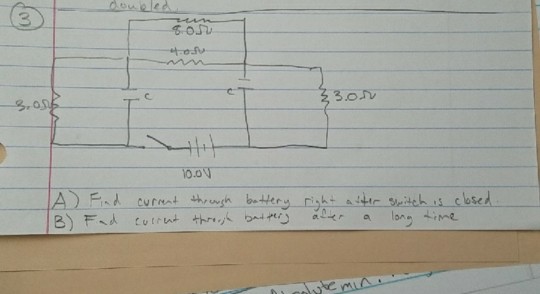 doubled.
3
8.0Ω
4.0Ω
3.0Ω
C
C
3.0Ω
10.0V
A) Find current through battery right after switch is closed
B) Find current through battery after a long time